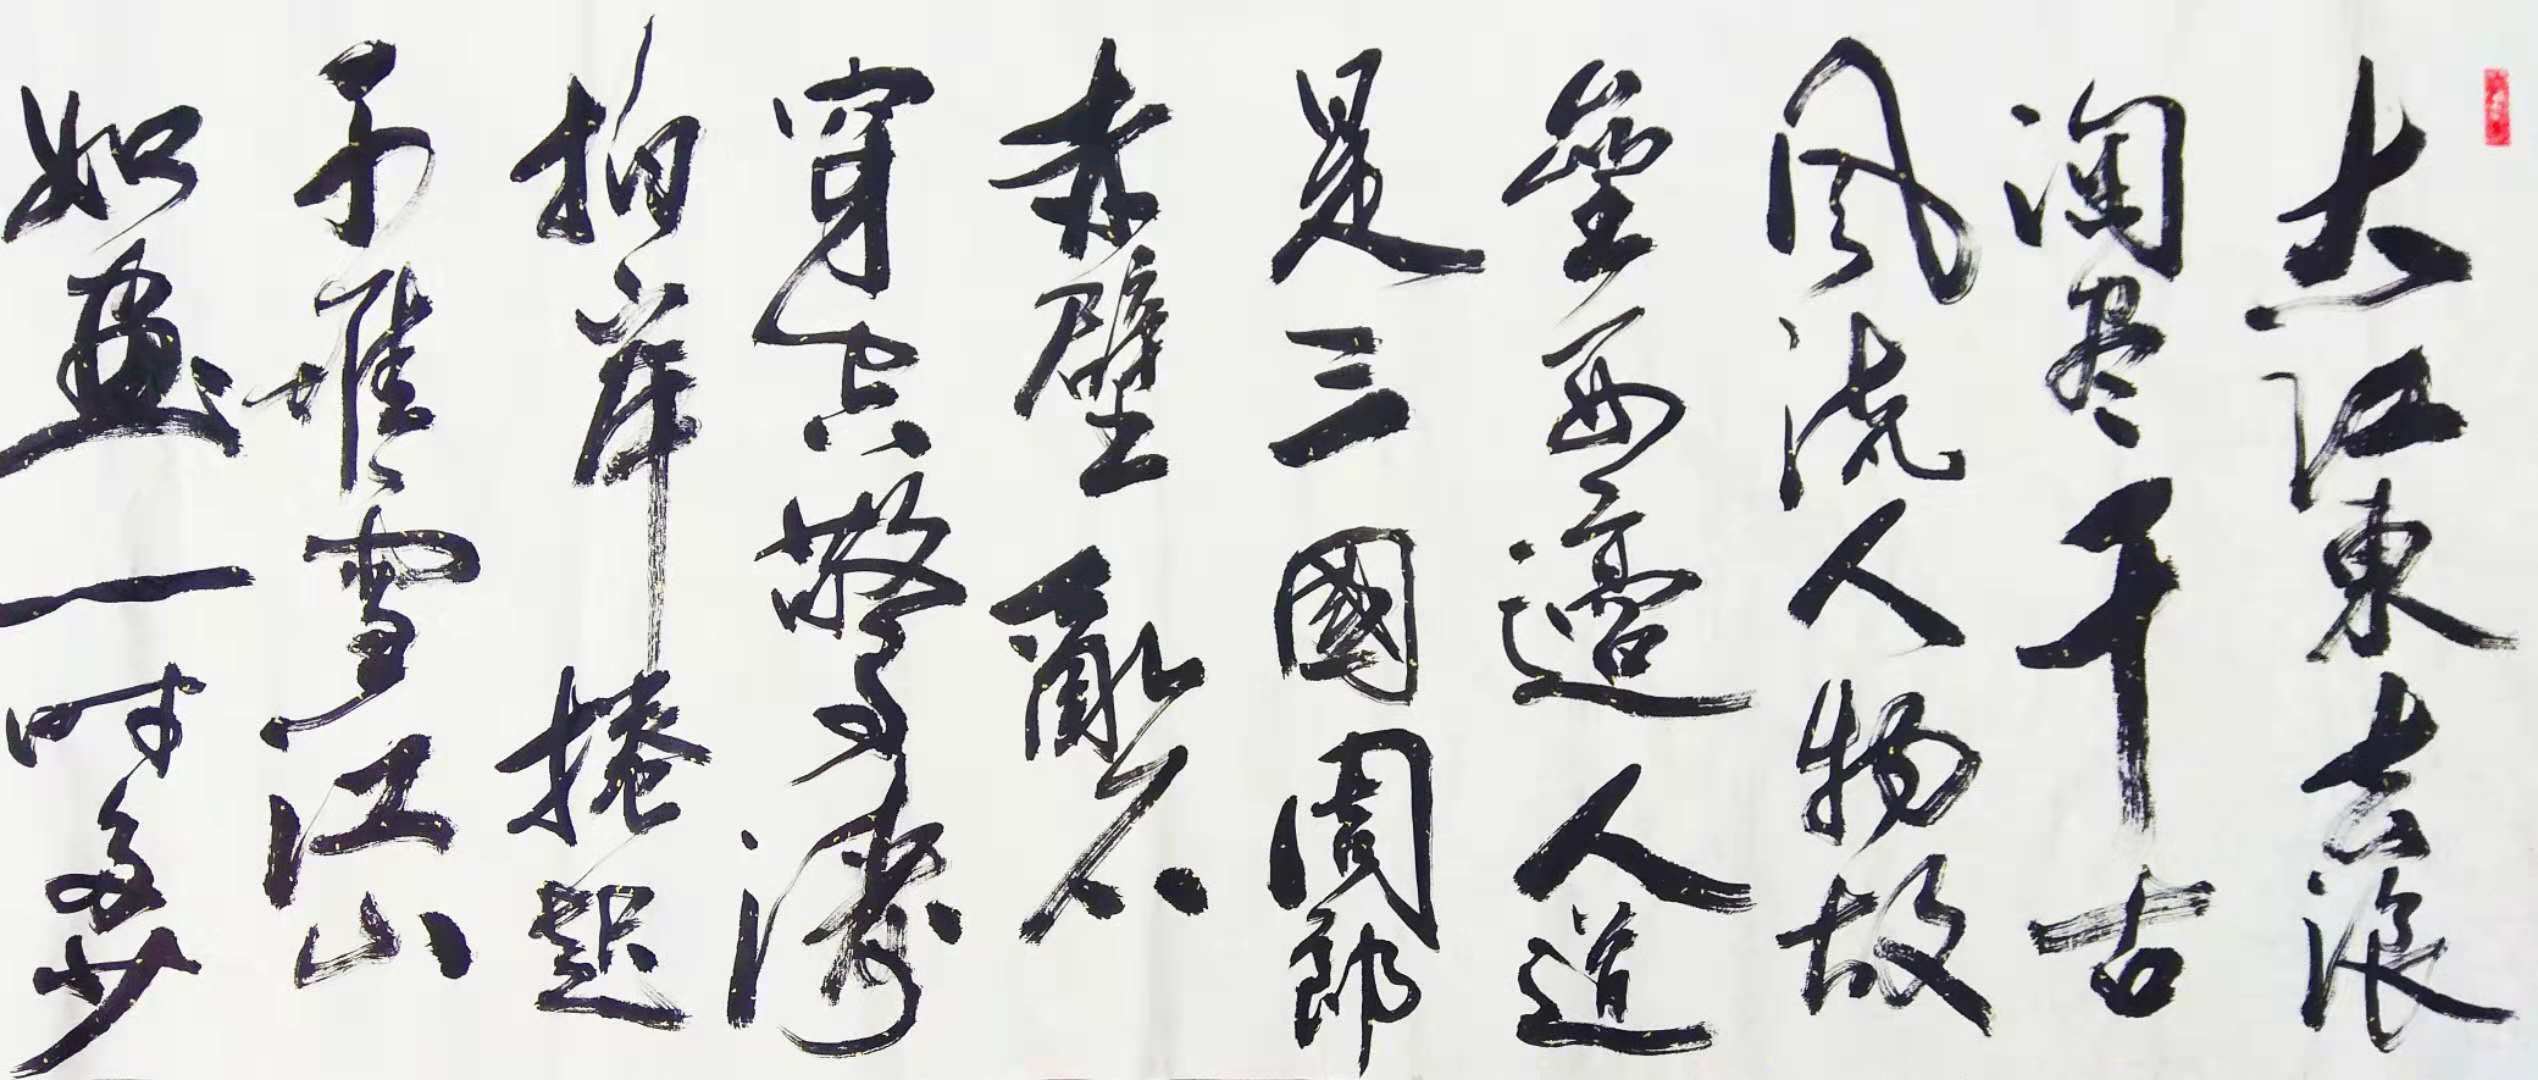 大江東去浪
淘尽千古
风流人物故
壘西邊人道
是三國周郎
赤壁亂石
穿空驚濤
拍岸捲起
千堆雪江山
如畫一时多少